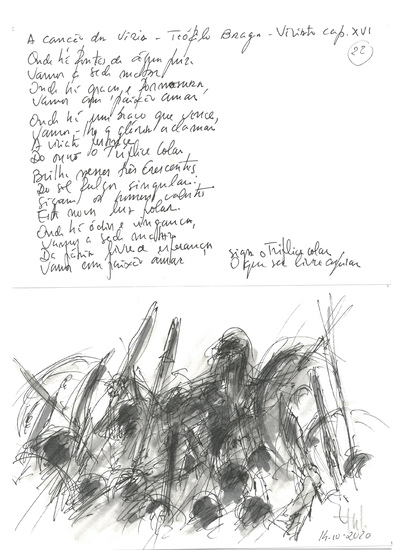 A canção da Viria - Teófilo Braga - Viriato cap. XVI
22
Onde há fontes de água pura
Vamos a sede matar
Onde há graça e formosura,
Vamos com paixão amar,
Onde há um braço que vence,
Vamos-lhe a glória aclamar
A Viria
Do ouro o Tríplice Colar
Brilha três Crescentes
Do sol fulgor singular:
Sigam os
Esta nova luz polar.
Onde há ódio e vingança,
Vamos a sede matar
Da pátria livre a esperança
Vamos com paixão amar
siga o Tríplice colar
O que ser livre
14-10-2020